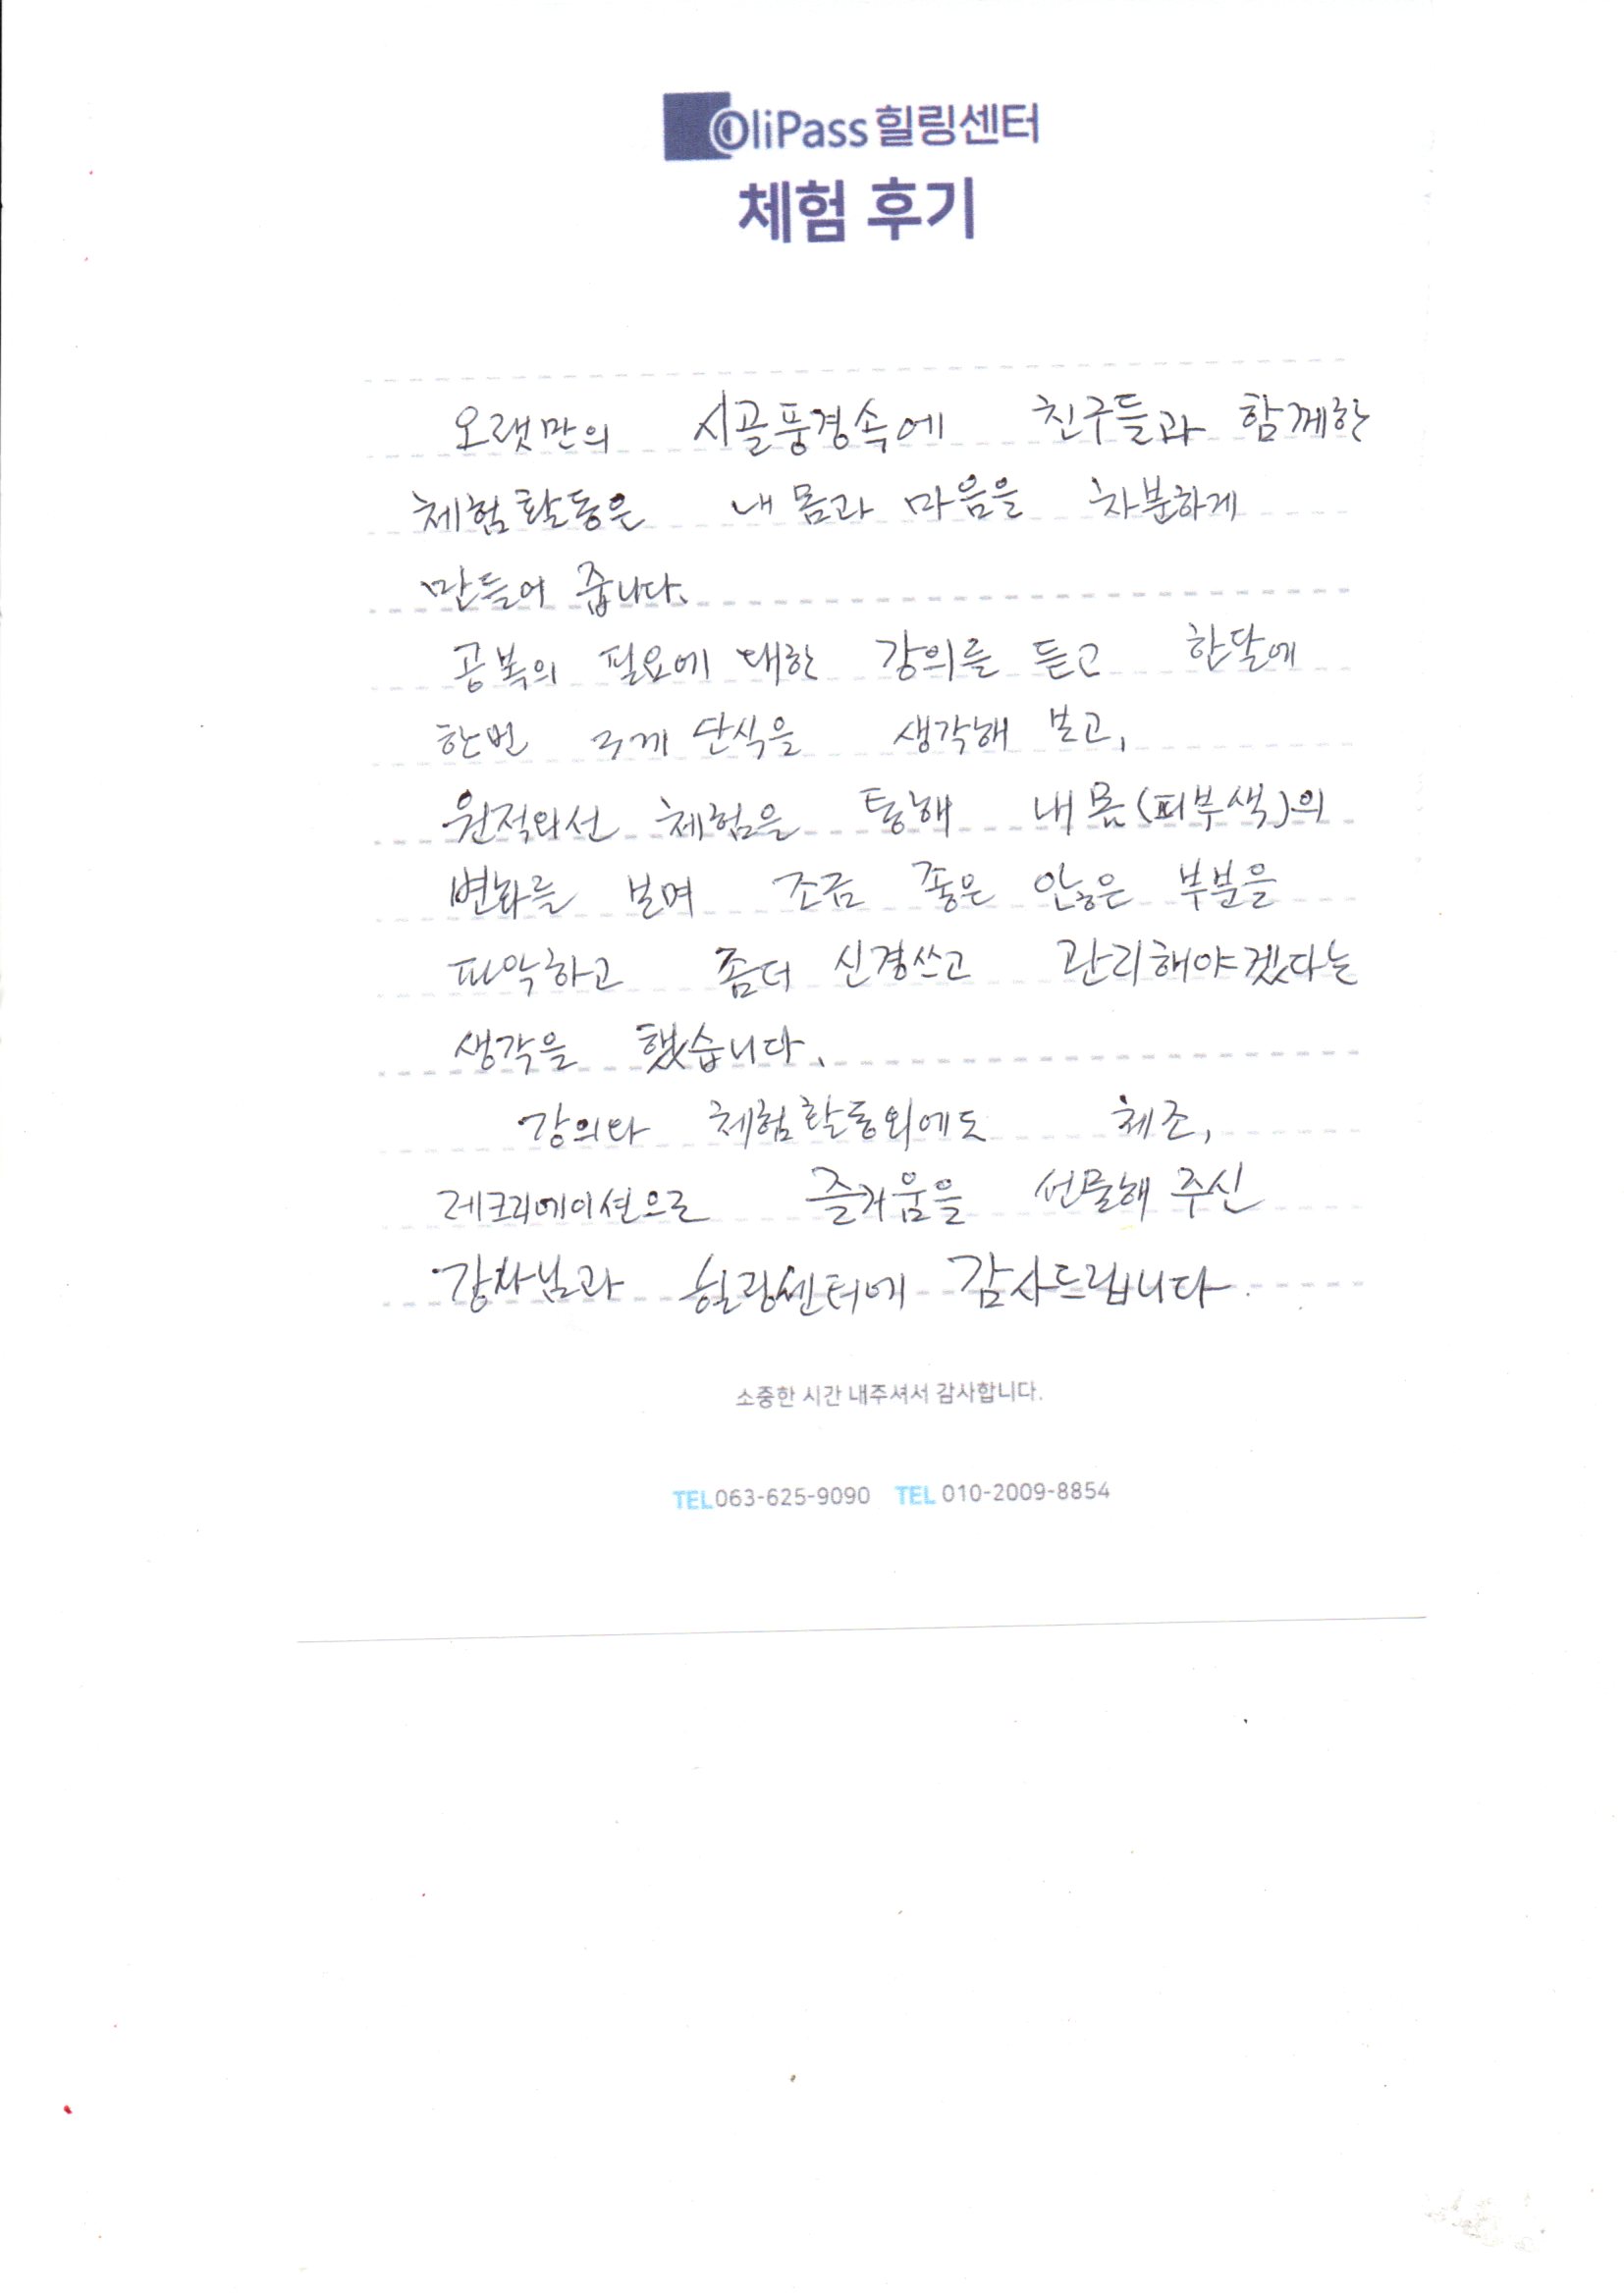 OliPass 힐링센터
체험 후기
오랫만의 시골풍경속에 친구들과 함께한
체험활동은 내 몸과 마음을 차분하게
만들어 줍니다.
공복의 필요에 대한 강의를 듣고 한달에
한번 3끼 단식을 생각해 보고,
원적외선 체험을 통해 내몸(피부색)의
변화를 보며 조금 좋은 않은 부분을
파악하고 좀더 신경쓰고 관리해야겠다는
생각을 했습니다.
강의와 체험활동외에도 체조,
레크리에이션으로 즐거움을 선물해 주신
강사님과 힐링센터에 감사드립니다.
소중한 시간 내주셔서 감사합니다.
TEL 063-625-9090 TEL 010-2009-8854